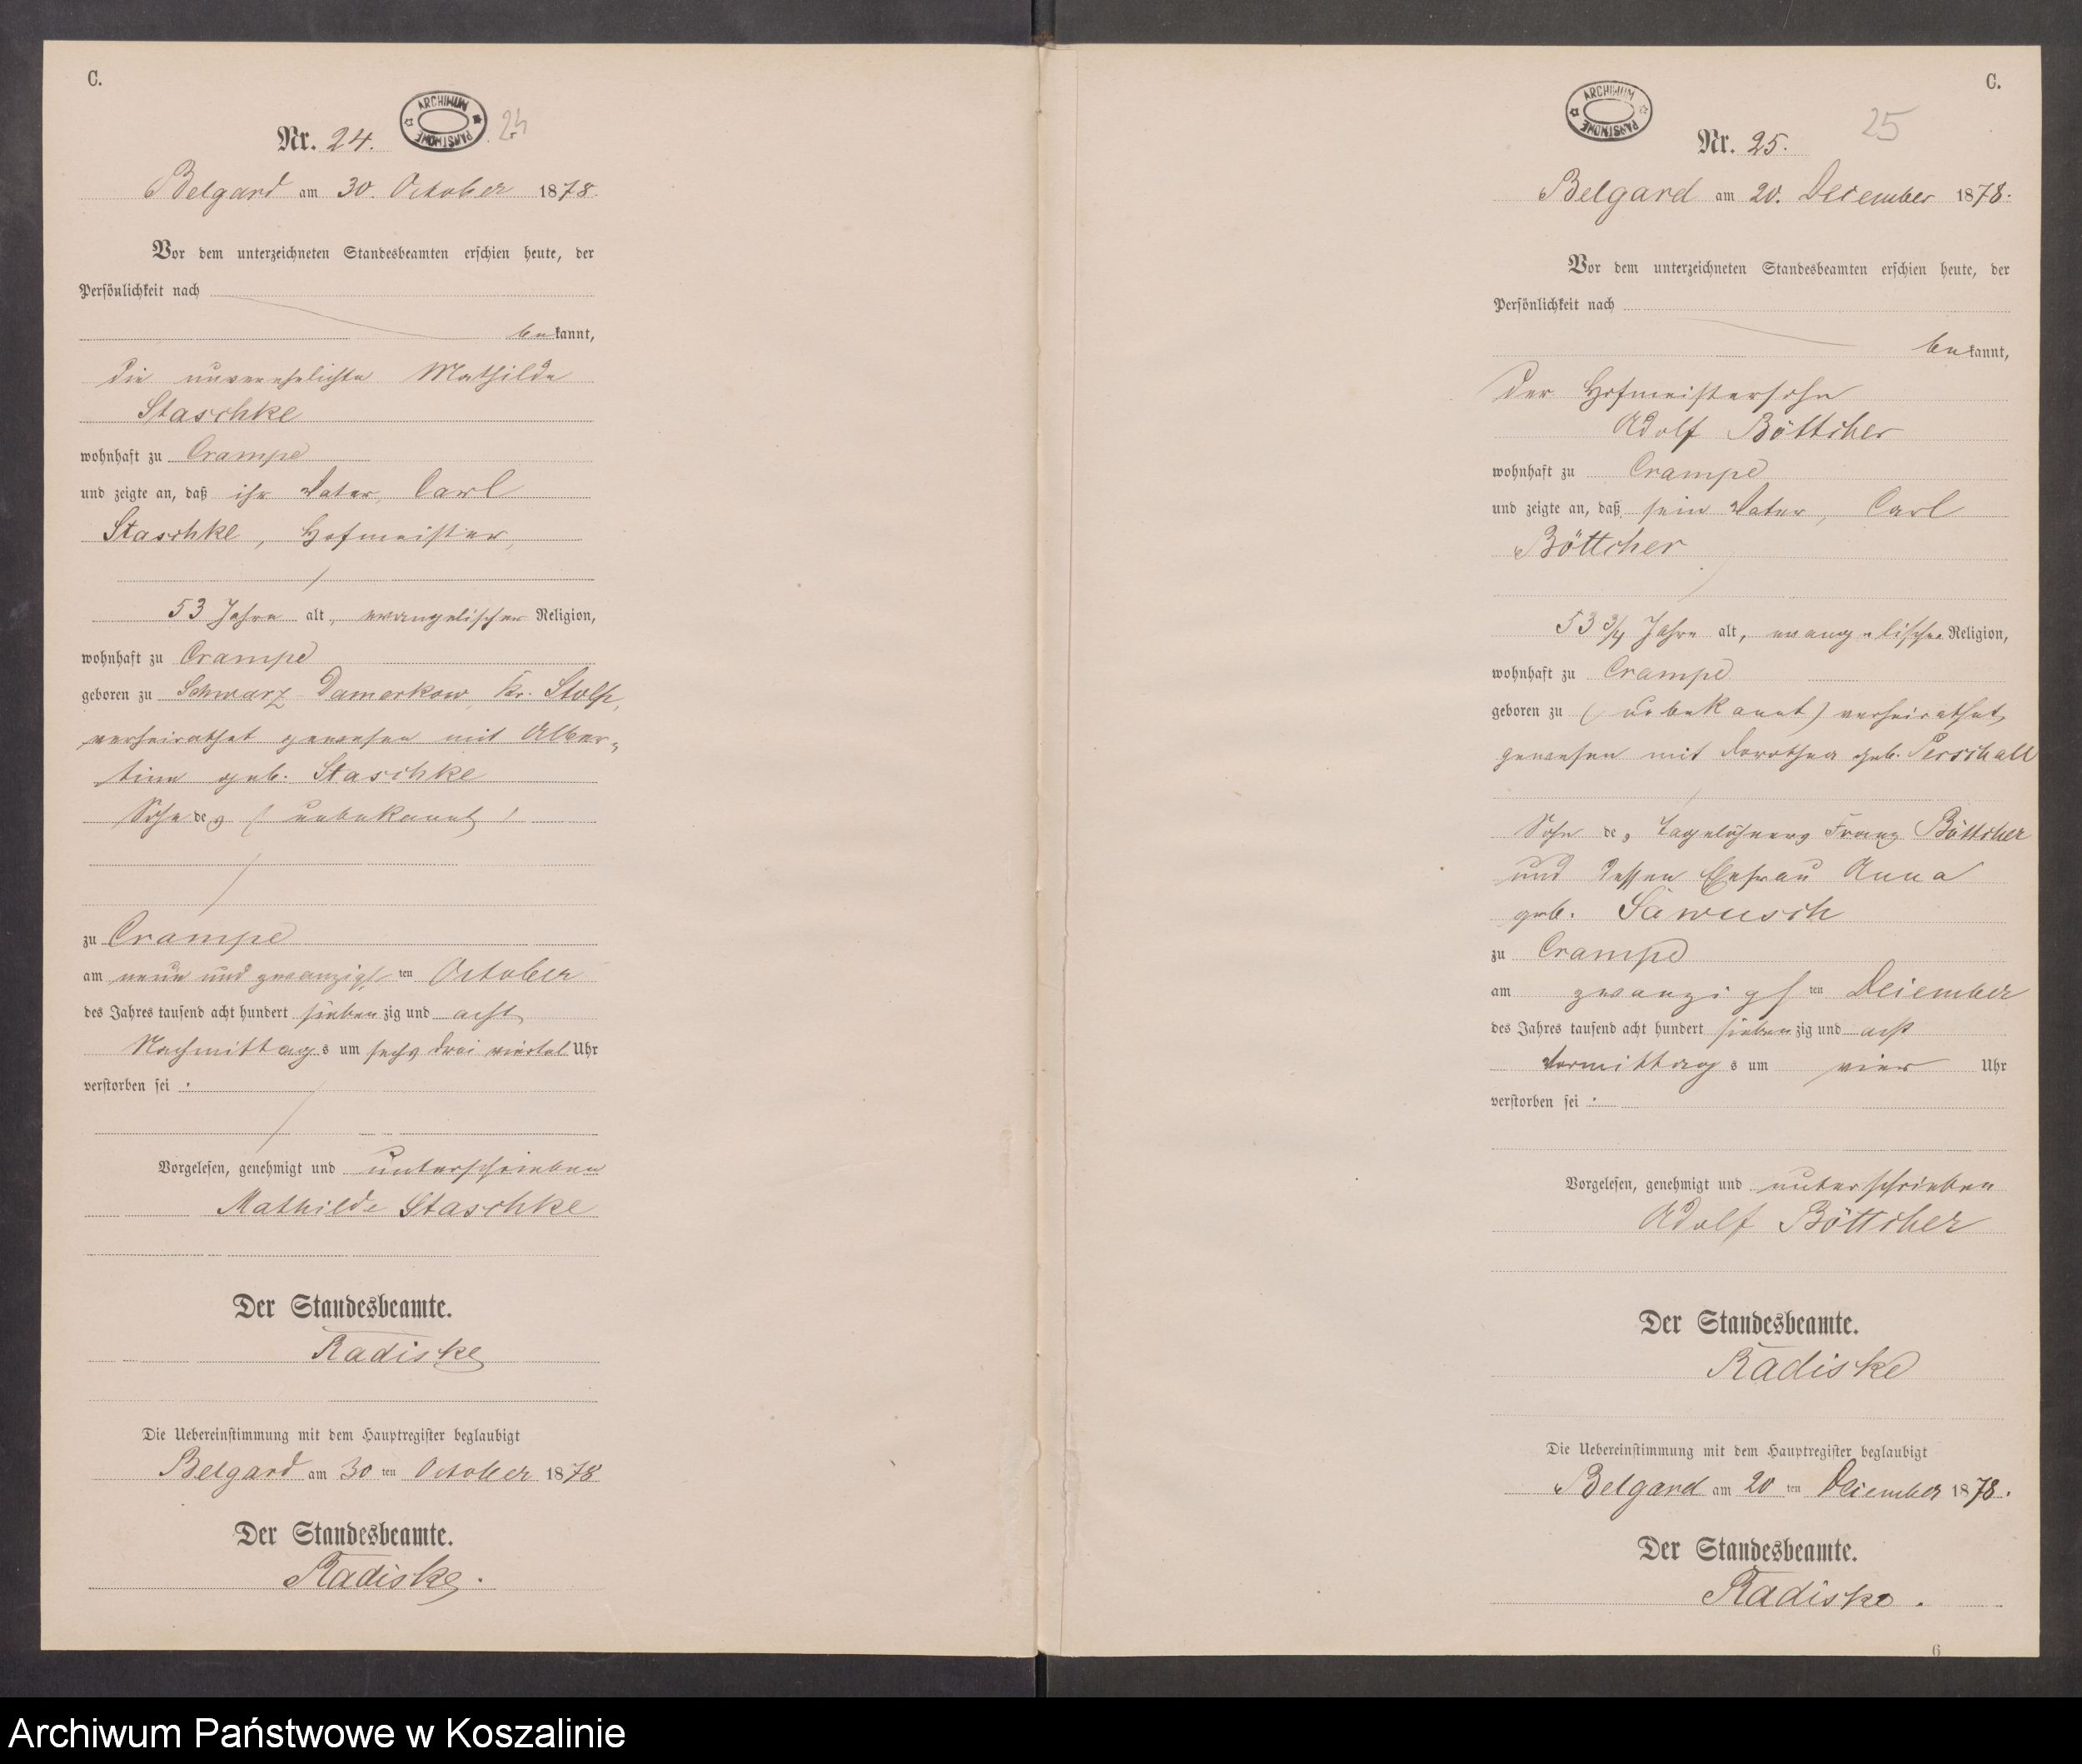 C.
ARCHIWUM PAŃSTWOWE
Nr. 24. 24
Belgard am 30. October 1878.
Vor dem unterzeichneten Standesbeamten erschien heute, der
Persönlichkeit nach
bekannt,
die unverehelichte Mathilde
Staschke
wohnhaft zu Crampe
und zeigte an, daß ihr Vater, Carl
Staschke, Hofmeister,
53 Jahre alt, evangelischer Religion,
wohnhaft zu Crampe
geboren zu Schwarz Damerkow Kr. Stolp,
verheirathet gewesen mit Alber-
tine geb. Staschke
Sohn des (unbekannt)
zu Crampe
am neun und zwanzigsten October
des Jahres tausend acht hundert siebenzig und acht
Nachmittags um sechs drei viertel Uhr
verstorben sei.
Vorgelesen, genehmigt und unterschrieben
Mathilde Staschke
Der Standesbeamte.
Radiske
Die Uebereinstimmung mit dem Hauptregister beglaubigt
Belgard am 30ten October 1878
Der Standesbeamte.
Radiske.
C.
ARCHIWUM PAŃSTWOWE
Nr. 25. 25
Belgard am 20. December 1878.
Vor dem unterzeichneten Standesbeamten erschien heute, der
Persönlichkeit nach
bekannt,
der Hofmeistersohn
Adolf Böttcher
wohnhaft zu Crampe
und zeigte an, daß sein Vater, Carl
Böttcher
53 3/4 Jahre alt, evangelischer Religion,
wohnhaft zu Crampe
geboren zu (unbekannt) verheirathet
gewesen mit Dorothea geb. Perschall
Sohn des Tagelöhners Franz Böttcher
und dessen Ehefrau Anna
geb. Sawusch
zu Crampe
am zwanzigsten December
des Jahres tausend acht hundert siebenzig und acht
Vormittags um vier Uhr
verstorben sei.
Vorgelesen, genehmigt und unterschrieben
Adolf Böttcher
Der Standesbeamte.
Radiske
Die Uebereinstimmung mit dem Hauptregister beglaubigt
Belgard am 20ten December 1878.
Der Standesbeamte.
Radiske.
6
Archiwum Państwowe w Koszalinie